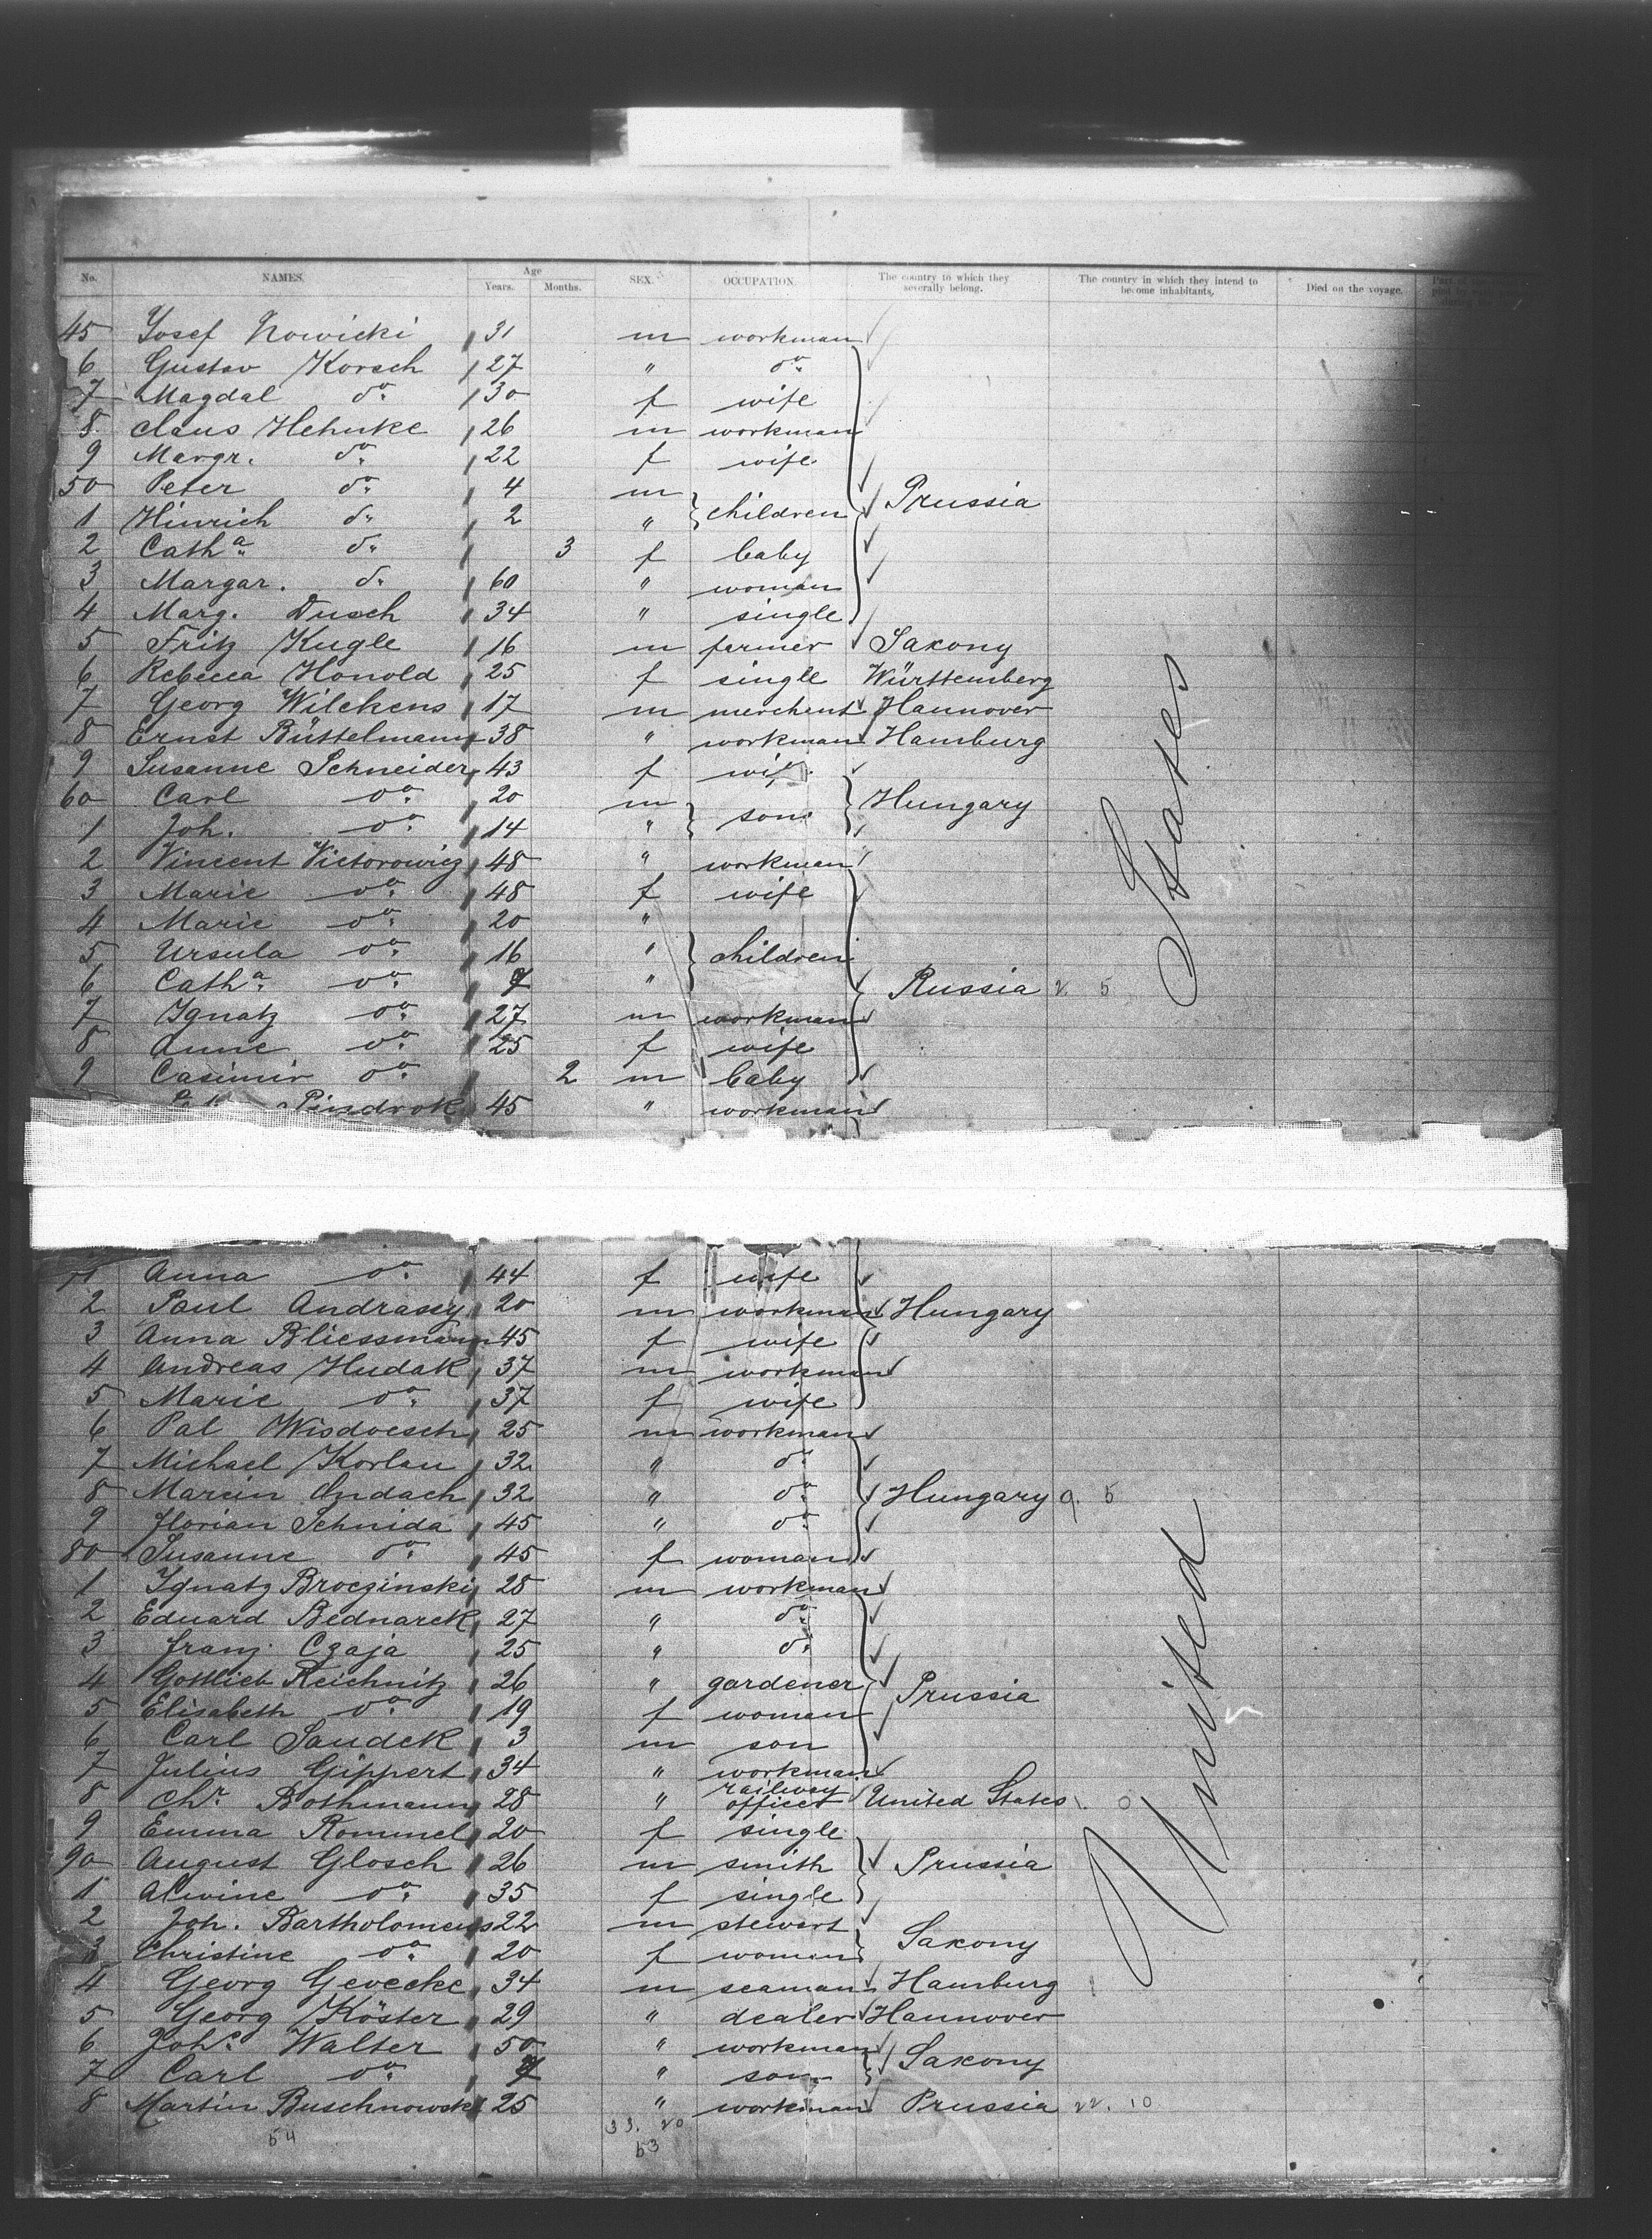 No. NAMES. Age Years. Months. SEX. OCCUPATION. The country to which they severally belong. The country in which they intend to become inhabitants. Died on the voyage.
45 Josef Nowicki 31 m workman
6 Gustav Korsch 27 " do.
7 Magdal do. 30 f wife
8 Claus Hehnke 26 m workman
9 Margr. do. 22 f wife
50 Peter do. 4 m
1 Hinrich do. 2 " children Prussia
2 Catha. do. 3 f baby
3 Margar. do. 60 " woman
4 Marg. Dusch 34 " single
5 Fritz Kugle 16 m farmer Saxony
6 Rebecca Honold 25 f single Württemberg
7 Georg Wilckens 17 m merchant Hannover
8 Ernst Büttelmann 38 " workman Hamburg
9 Susanne Schneider 43 f wife
60 Carl do. 20 m sons Hungary
1 Joh. do. 14 "
2 Vincent Victorowicz 48 " workman
3 Marie do. 48 f wife
4 Marie do. 20 "
5 Ursula do. 16 " children
6 Catha. do. " Russia 2 5
7 Ignatz do. 27 m workman
8 Anne do. 25 f wife
9 Casimir do. 2 m baby
Pindrok 45 " workman
71 Anna do. 44 f wife
2 Paul Andrassy 20 m workman Hungary
3 Anna Bliessmann 45 f wife
4 Andreas Hudak 37 m workman
5 Marie do. 37 f wife
6 Pal Wisdoesch 25 m workman
7 Michael Korlau 32 " do.
8 Marcin Ondach 32 " do. Hungary 9. 5
9 Florian Schnida 45 " do.
80 Susanne do. 45 f woman
1 Ignatz Broczinski 28 m workman
2 Eduard Bednarek 27 " do.
3 Franz Czaja 25 " do.
4 Gottlieb Reichnitz 26 " gardener Prussia
5 Elisabeth do. 19 f woman
6 Carl Saudek 3 m son
7 Julius Gippert 34 " workman
8 Chr. Bothmann 28 " railway officer United States 0
9 Emma Rommel 20 f single
90 August Glosch 26 m smith Prussia
1 Alwine do. 35 f single
2 Joh. Bartholomeus 22 m stewart
3 Christine do. 20 f woman Saxony
4 Georg Gevecke 34 m seaman Hamburg
5 Georg Köster 29 " dealer Hannover
6 Johs. Walter 50 " workman
7 Carl do. " son Saxony
8 Martin Buschnowski 25 " workman Prussia 22. 10
54 33. 20
53
United States